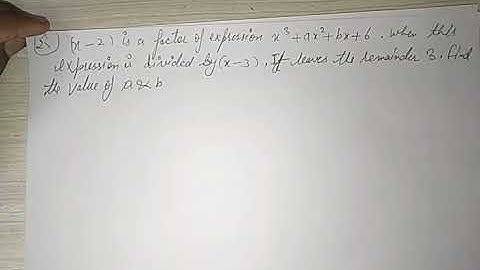 25) (x-2) is a factor of expression x³+ax²+bx+6. when this
expression is divided by (x-3), It leaves the remainder 3. find
the value of a & b